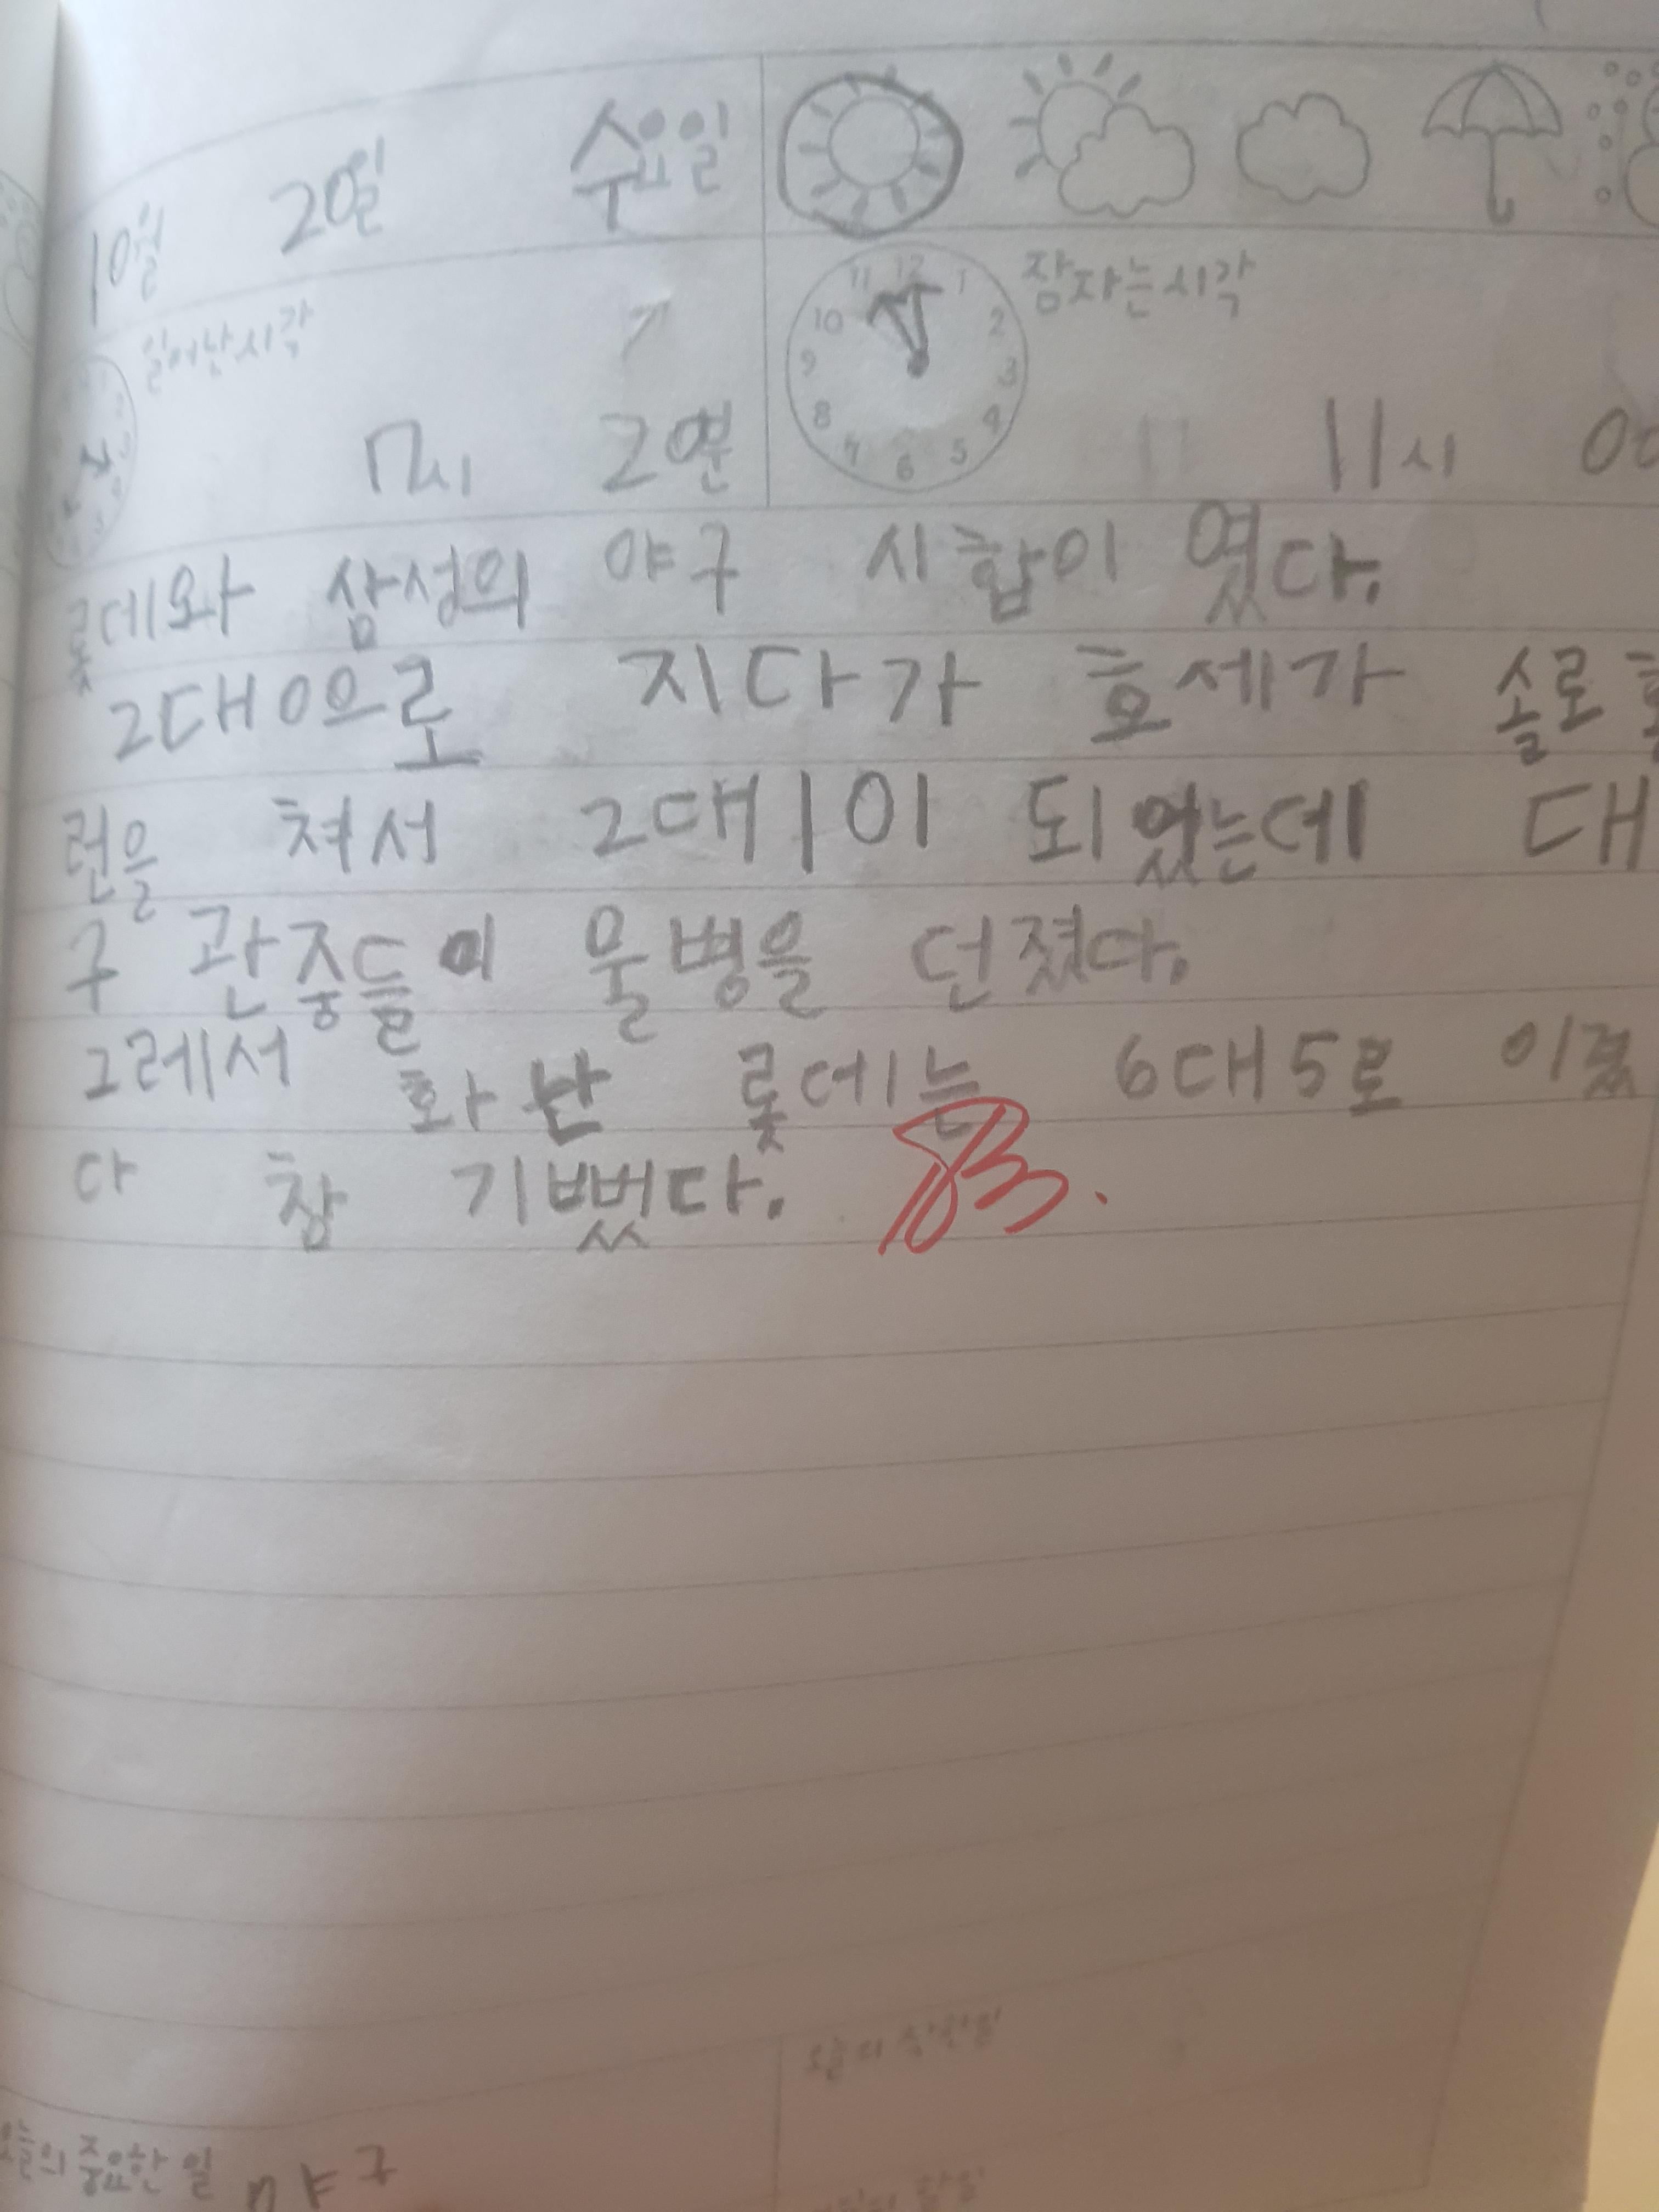 10월 20일 수요일
일어난시각 잠자는시각
11 12 1
10 2
9 3
8 4
7 6 5
7시 11시
롯데와 삼성의 야구 시합이 였다.
2대0으로 지다가 호세가 솔로
런을 쳐서 2대1이 되었는데 대
구 관중들이 물병을 던졌다.
그레서 화난 롯데는 6대5로 이겼
다 참 기뻤다.
오늘의 중요한 일 야구